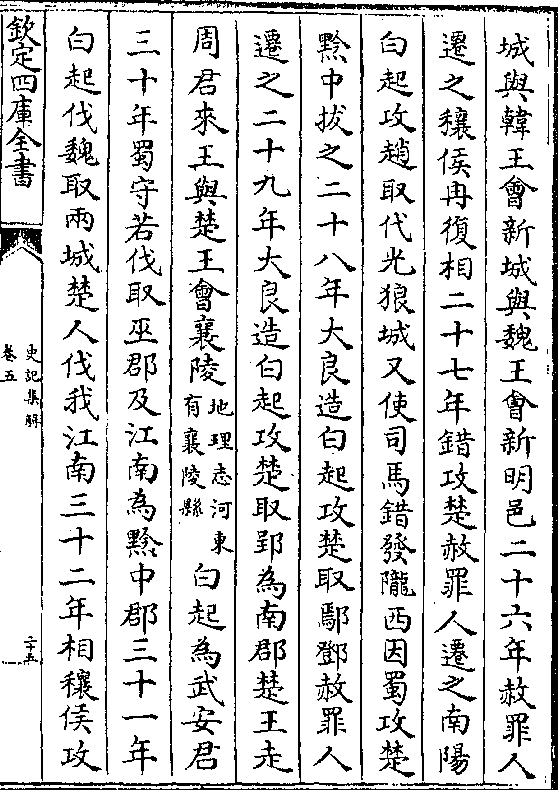 城與韓王會新城與魏王會新明邑二十六年赦罪人
遷之穰侯冉復相二十七年錯攻楚赦罪人遷之南陽
白起攻趙取代光狼城又使司馬錯發隴西因蜀攻楚
黔中拔之二十八年大良造白起攻楚取鄢鄧赦罪人
遷之二十九年大良造白起攻楚取郢為南郡楚王走
周君來王與楚王會襄陵地理志河東有襄陵縣白起為武安君
三十年蜀守若伐取巫郡及江南為黔中郡三十一年
白起伐魏取兩城楚人伐我江南三十二年相穰侯攻
欽定四庫全書
史記集解
卷五
二十五